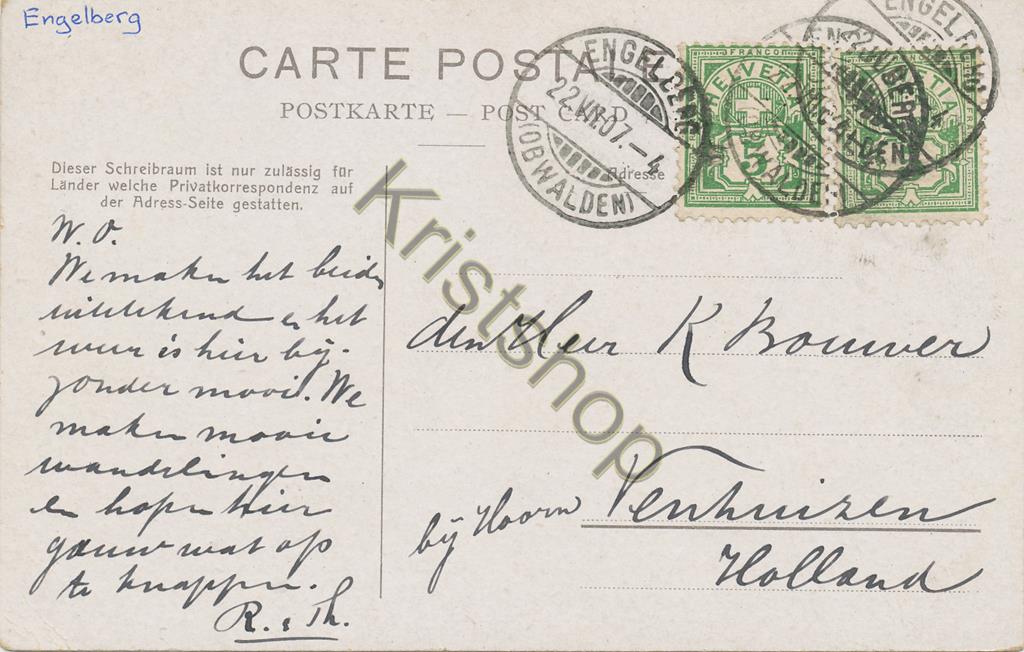 Engelberg
CARTE POSTALE
POSTKARTE — POST CARD
Dieser Schreibraum ist nur zulässig für
Länder welche Privatkorrespondenz auf
der Adress-Seite gestatten.
Adresse
ENGELBERG
22.VII.07.-4
(OBWALDEN)
FRANCO
HELVETIA
5
W. O.
We maken het beiden
uitstekend & het
weer is hier bij-
zonder mooi. We
maken mooie
wandelingen
en hopen hier
gauw wat op
te knappen.
R. & Th.
den Heer K Bouwer
bij Hoorn Venhuizen
Holland
Kristshop